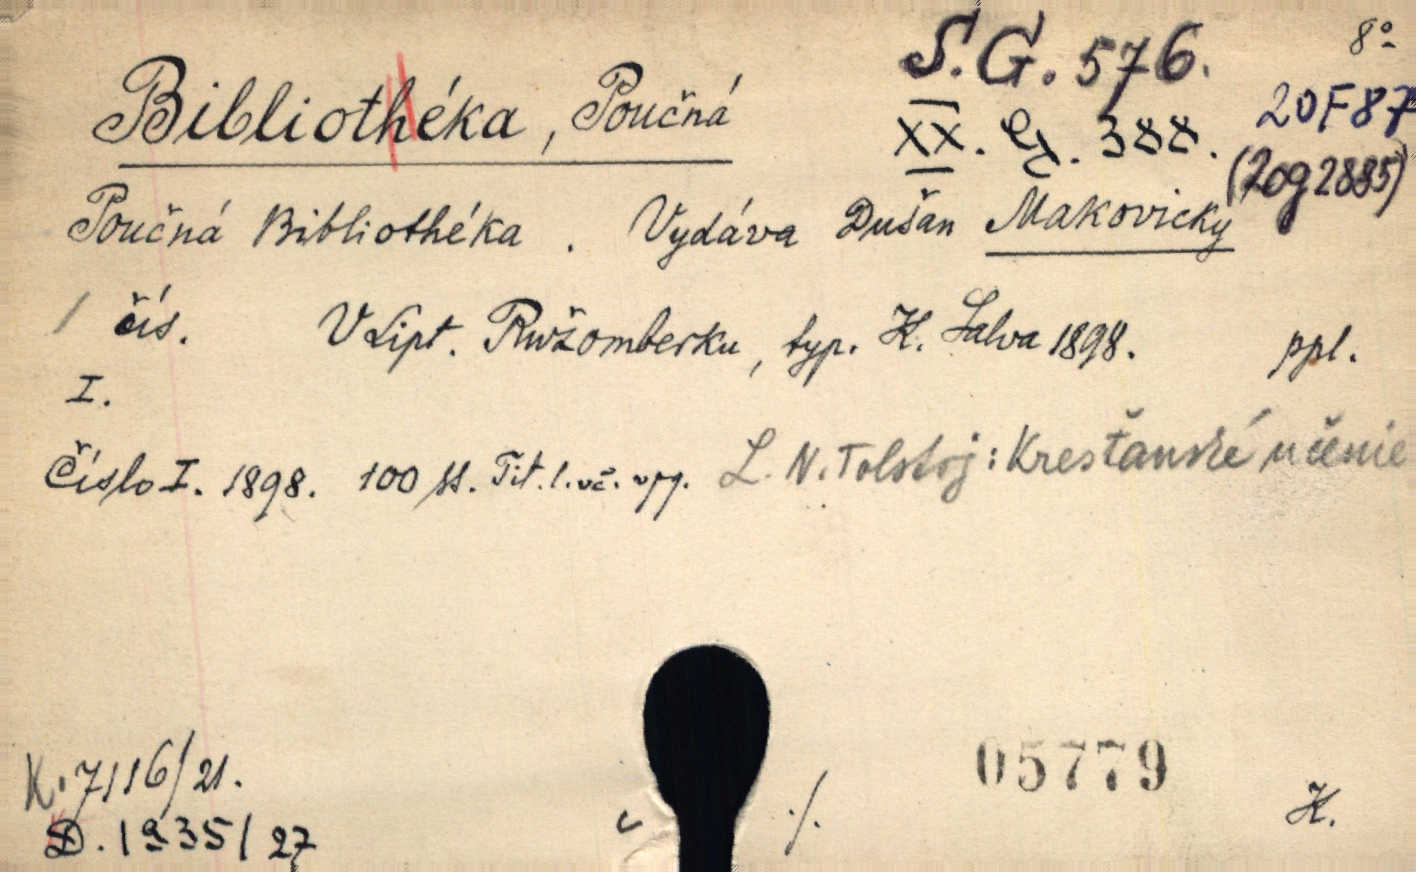 S.G. 576. 8º
Bibliothéka, Poučná
XX. G. 388. 20F87
(20g2885)
Poučná Bibliothéka. Vydáva Dušan Makovický
1 čís. V Lipt. Ružomberku, typ. K. Salva 1898. ppl.
I.
Číslo I. 1898. 100 ss. Tit. l. vč. vpp. L. N. Tolstoj: Kresťanské učenie
K. 7116/21.
D. 1935/27
./.
05779
K.